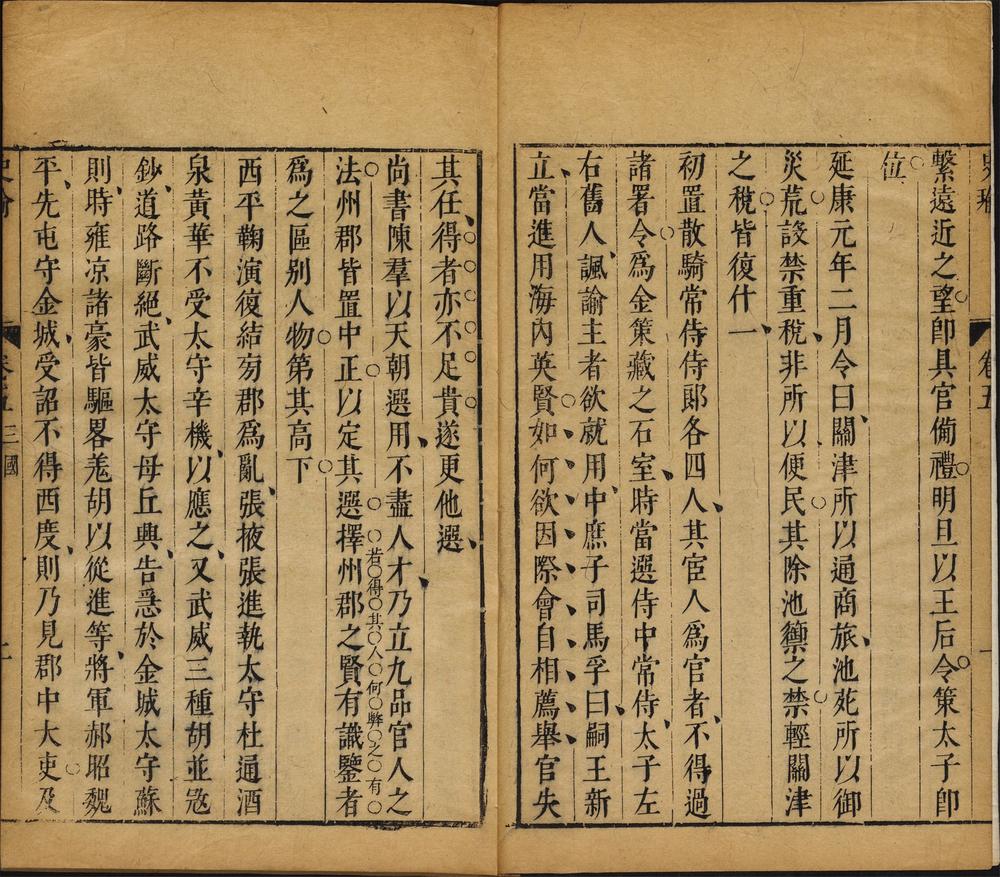 卷五
繫遠近之望卽具官備禮明旦以王后令策太子卽
位
延康元年二月令曰關津所以通商旅池苑所以御
災荒設禁重稅非所以便民其除池籞之禁輕關津
之稅皆復什一
初置散騎常侍侍郎各四人其宦人爲官者不得過
諸署令爲金策藏之石室時當選侍中常侍太子左
右舊人諷諭主者欲就用中庶子司馬孚曰嗣王新
立當進用海內英賢如何欲因際會自相薦舉官失
其任得者亦不足貴遂更他選
尚書陳羣以天朝選用不盡人才乃立九品官人之
若得其人何弊之有
法州郡皆置中正以定其選擇州郡之賢有識鑒者
爲之區别人物第其高下
西平鞠演復結旁郡爲亂張掖張進執太守杜通酒
泉黃華不受太守辛機以應之又武威三種胡並寇
鈔道路斷絕武威太守母丘興告急於金城太守蘇
則時雍凉諸豪皆驅畧羗胡以從進等將軍郝昭魏
平先屯守金城受詔不得西度則乃見郡中大吏及
卷五 三國